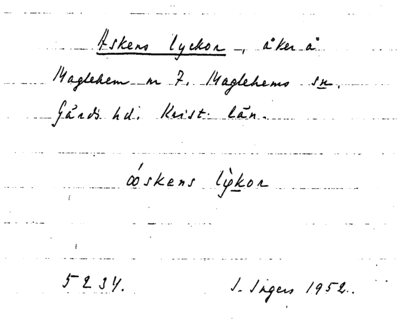 Askens lyckor, åker å
Maglehem nr 7. Maglehems sn.
Gärds hd. Krist. län.
óoskens lỳkor
5234. I. Ingers 1952.